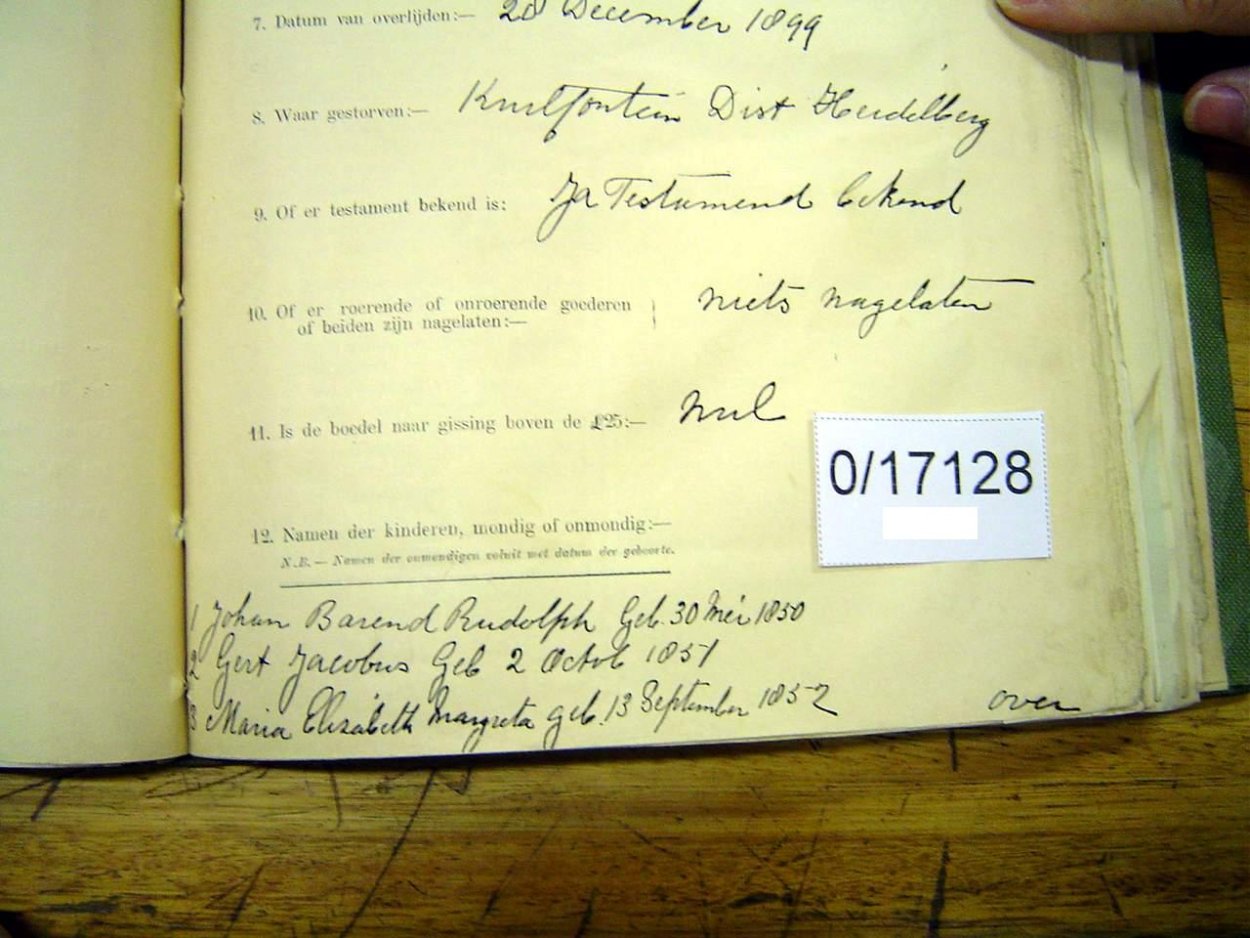 7. Datum van overlijden:— 28 December 1899
8. Waar gestorven:— Knilfontein Dist Heidelberg
9. Of er testament bekend is: Ja Testament bekend
10. Of er roerende of onroerende goederen niets nagelaten
of beiden zijn nagelaten:—
11. Is de boedel naar gissing boven de £25:— nul
0/17128
12. Namen der kinderen, mondig of onmondig:—
N.B. — Namen der onmondigen voluit met datum der geboorte.
1 Johan Barend Rudolph Geb. 30 Mei 1850
2 Gert Jacobus Geb 2 Octob 1851
3 Maria Elizabeth Margreta geb. 13 September 1852
over